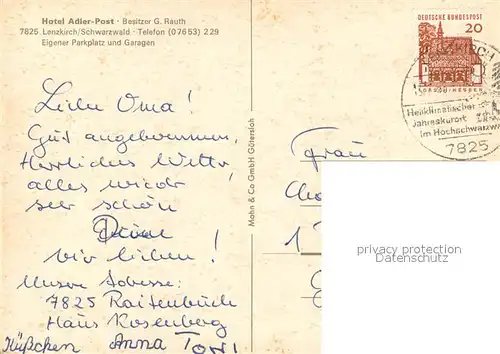 Hotel Adler-Post · Besitzer G. Rauth
7825 Lenzkirch/Schwarzwald · Telefon (07653) 229
Eigener Parkplatz und Garagen
DEUTSCHE BUNDESPOST
20
LORSCH·HESSEN
Heilklimatischer
Jahreskurort
im Hochschwarzw
7825
Liebe Oma!
Gut angekommen,
Herrliches Wetter
alles wieder
sehr schön
wir lieben!
Unsere Adresse:
7825 Raitenbuch
Haus Rosenberg
Küßchen Anna Toni
Mohn & Co GmbH Gütersloh
Frau
privacy protection